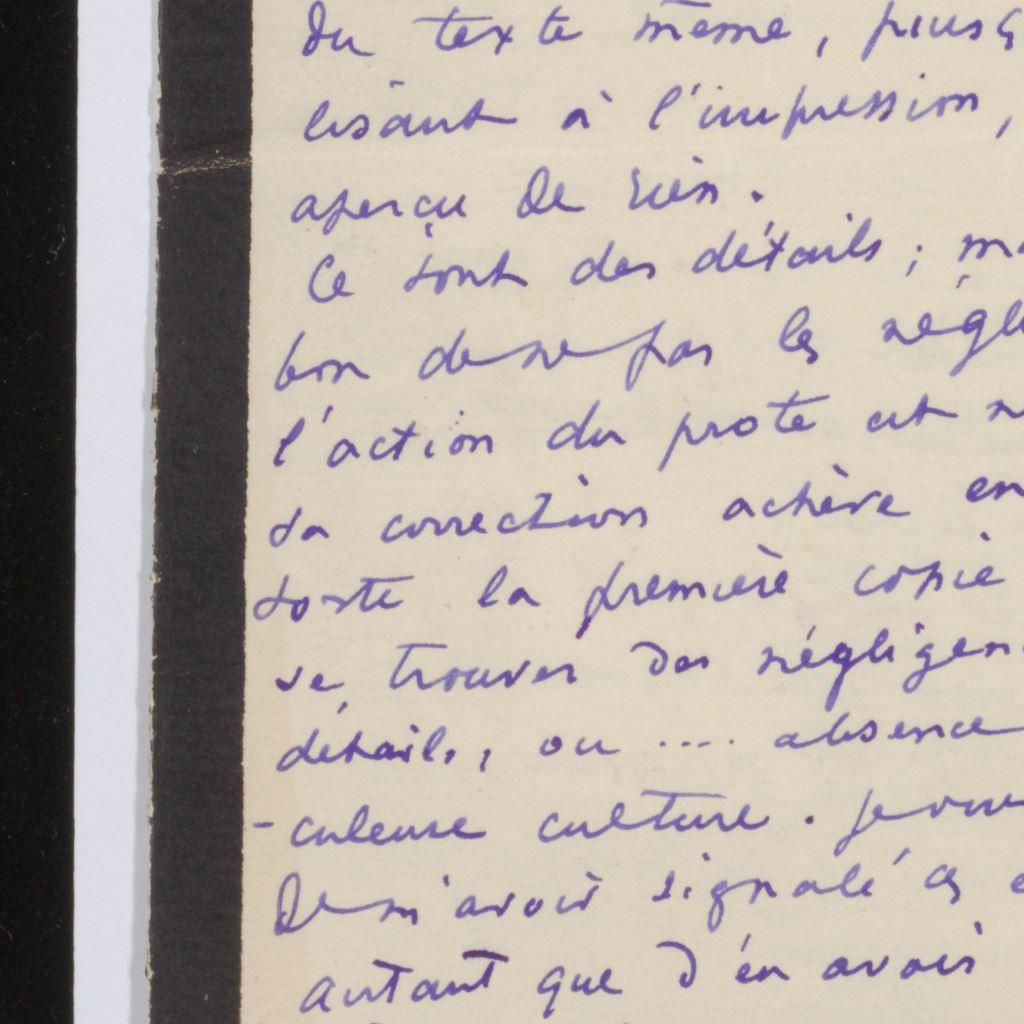 du texte même, puisq
lisant à l'impression,
aperçu de rien.
Ce sont des détails ; ma
bon de ne pas les négl
l'action du prote est n
sa correction achève en
sorte la première copie
se trouver des négligen
détails, ou .... absence
-culeuse culture. Je vou
De m'avoir signalé ces
autant que d'en avoir